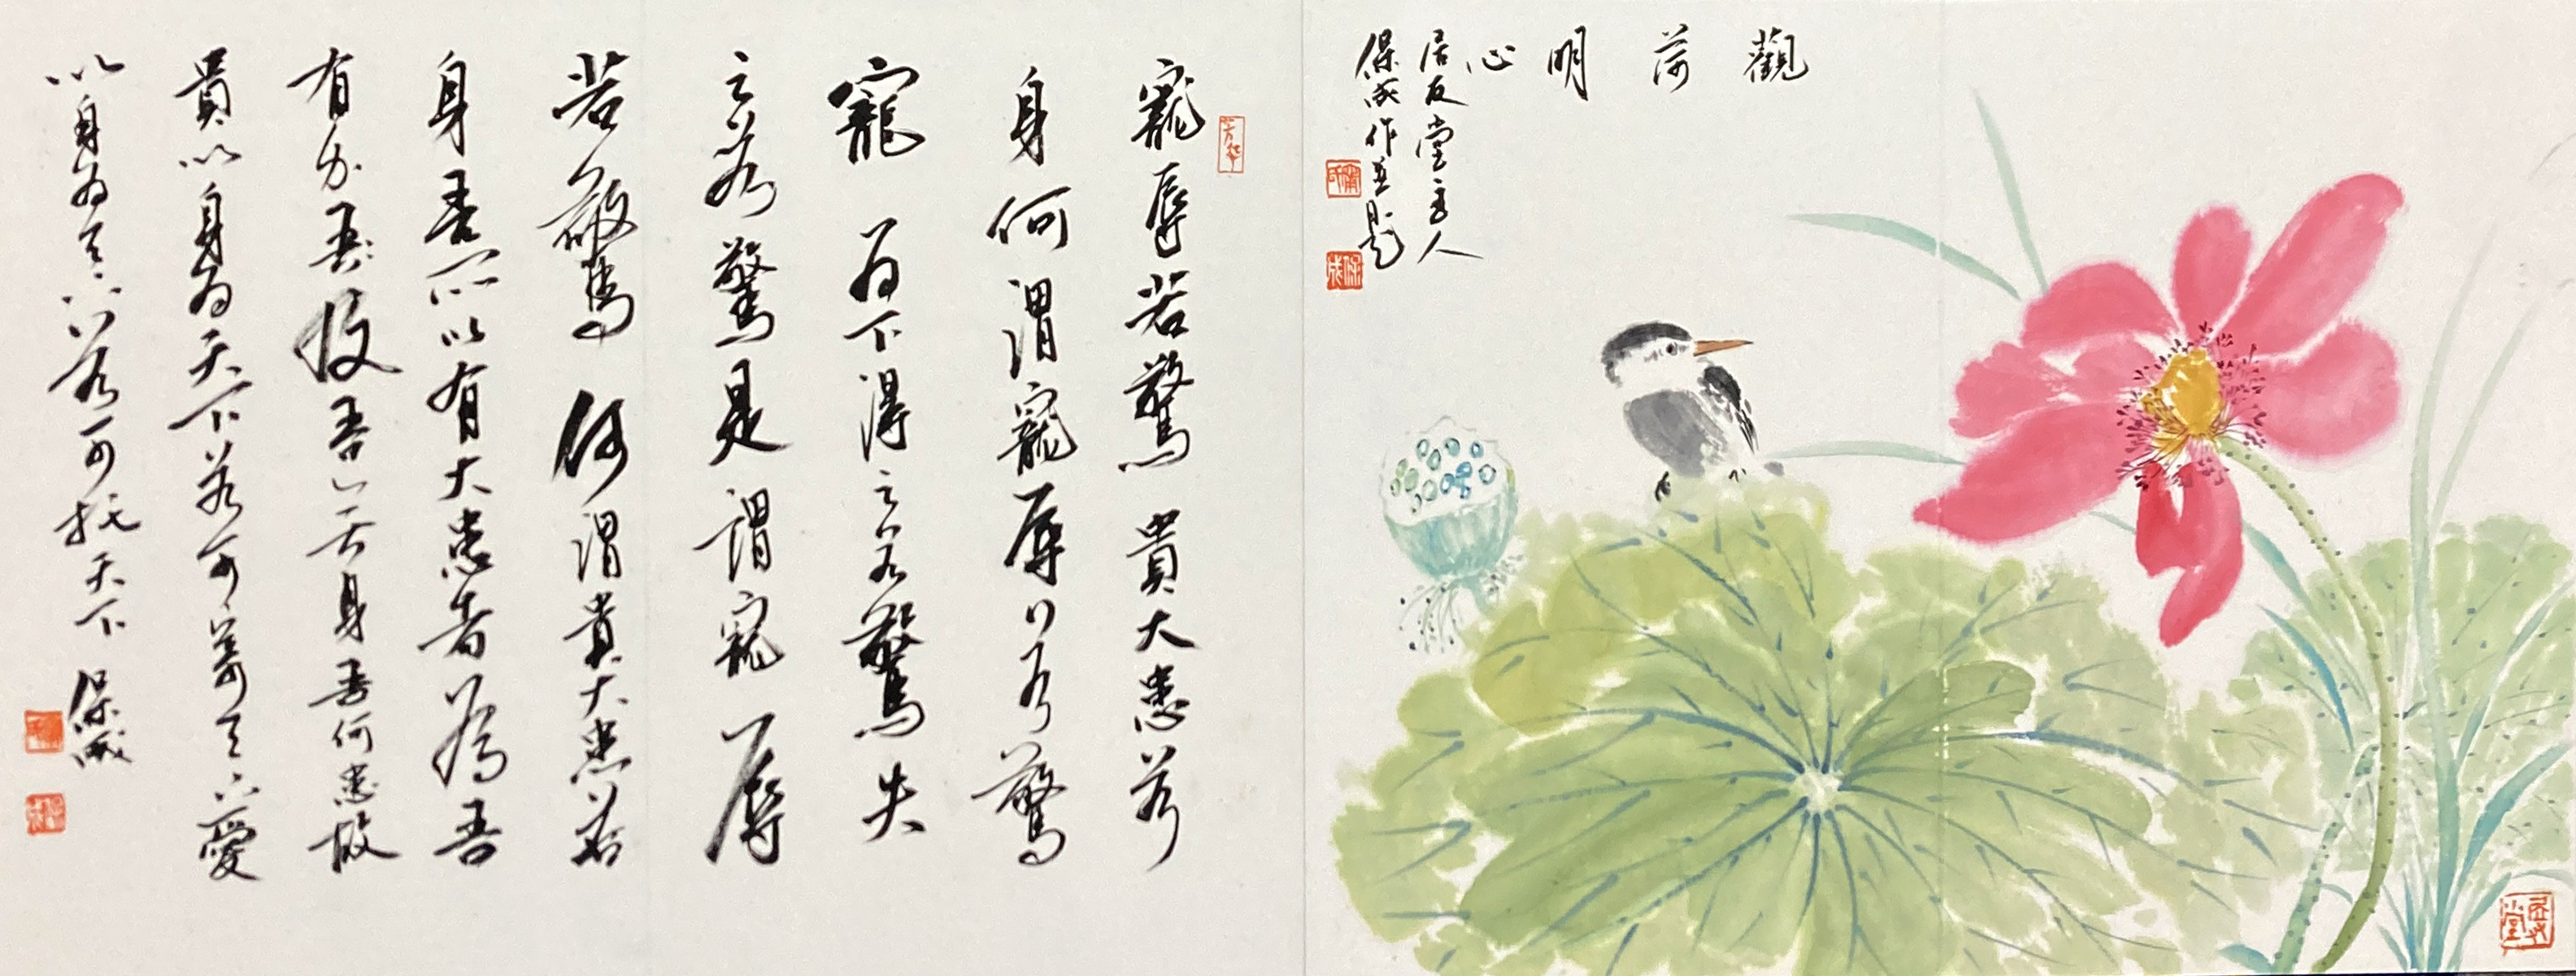 觀荷明心
居友堂主人
保成作並題
保成
居友堂
寵辱若驚貴大患若
身何謂寵辱若驚
寵為下得之若驚失
之若驚是謂寵辱
若驚何謂貴大患若
身吾所以有大患者為吾
有身吾及吾無身吾何患故
貴以身為天下若可寄天下愛
以身為天下若可托天下 保成
保成